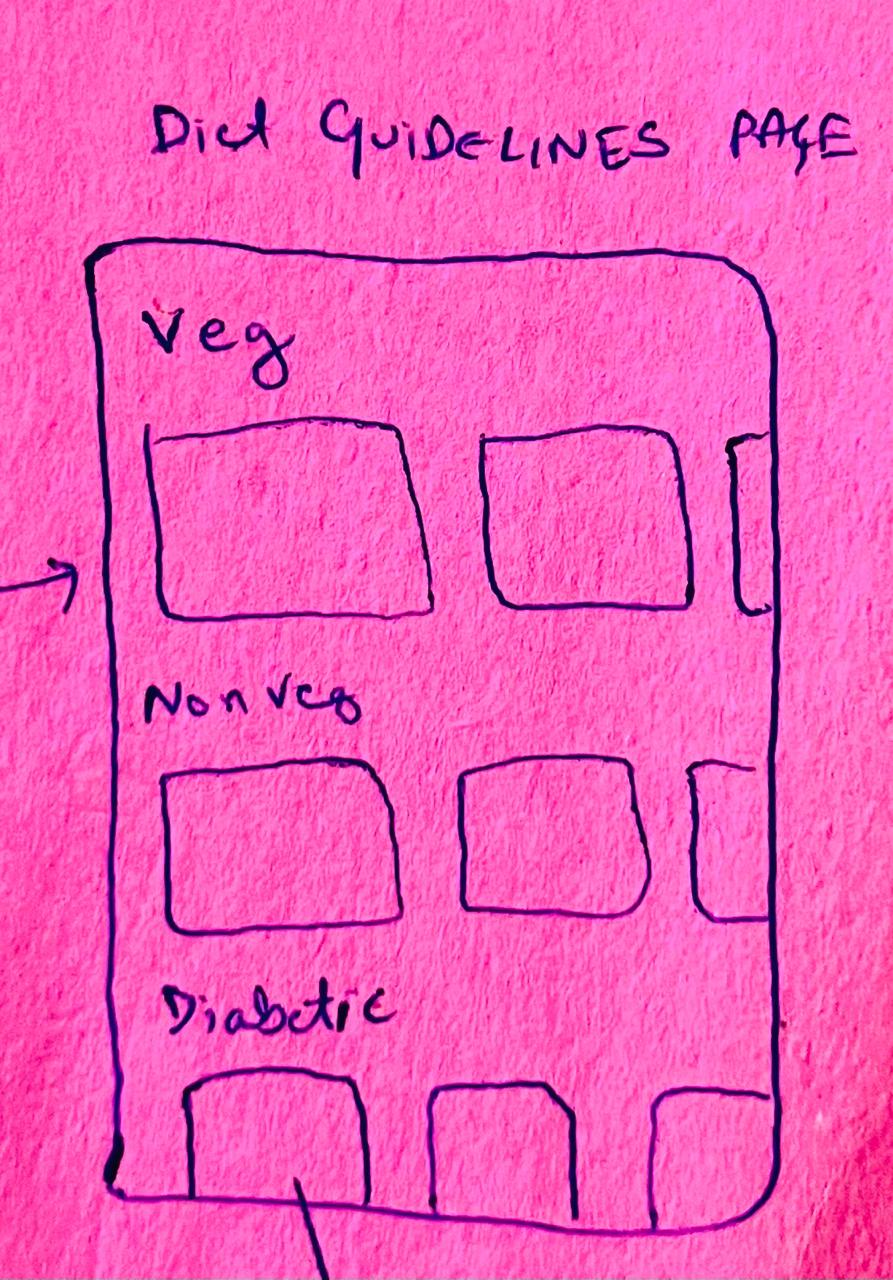 Diet GUiDELINES PAGE
Veg
Non Veg
Diabetic